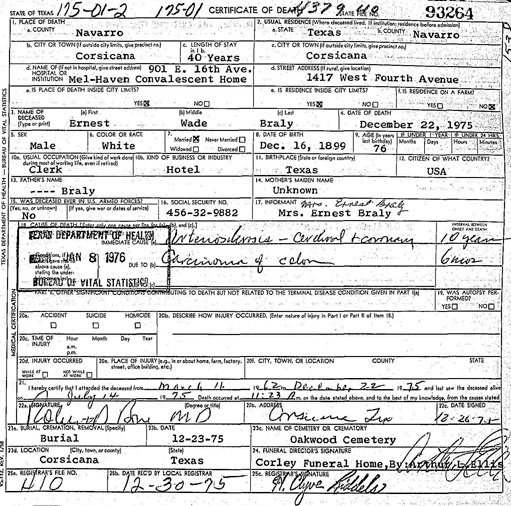 STATE OF TEXAS 175-01-2 175-01 CERTIFICATE OF DEATH 93264
1. PLACE OF DEATH
a. COUNTY Navarro
2. USUAL RESIDENCE (Where deceased lived. If institution: residence before admission)
a. STATE Texas b. COUNTY Navarro
b. CITY OR TOWN (If outside city limits, give precinct no.) Corsicana
c. LENGTH OF STAY in 1 b. 40 Years
c. CITY OR TOWN (If outside city limits, give precinct no.) Corsicana
d. NAME OF (If not in hospital, give street address) HOSPITAL OR INSTITUTION 901 E. 16th Ave. Mel-Haven Convalescent Home
d. STREET ADDRESS (If rural, give location) 1417 West Fourth Avenue
e. IS PLACE OF DEATH INSIDE CITY LIMITS? YES NO
e. IS RESIDENCE INSIDE CITY LIMITS? YES NO
f. IS RESIDENCE ON A FARM? YES NO
3. NAME OF DECEASED (Type or print) (a) First Ernest (b) Middle Wade (c) Last Braly
4. DATE OF DEATH December 22, 1975
5. SEX Male
6. COLOR OR RACE White
7. Married Never Married Widowed Divorced
8. DATE OF BIRTH Dec. 16, 1899
9. AGE (In years last birthday) 76
IF UNDER 1 YEAR Months Days
IF UNDER 24 HRS. Hours Min.
10a. USUAL OCCUPATION (Give kind of work done during most of working life, even if retired) Clerk
10b. KIND OF BUSINESS OR INDUSTRY Hotel
11. BIRTHPLACE (State or foreign country) Texas
12. CITIZEN OF WHAT COUNTRY? USA
13. FATHER'S NAME ---- Braly
14. MOTHER'S MAIDEN NAME Unknown
15. WAS DECEASED EVER IN U.S. ARMED FORCES? (Yes, no, or unknown) (If yes, give war or dates of service) No
16. SOCIAL SECURITY NO. 456-32-9882
17. INFORMANT Mrs. Ernest Braly
Mrs. Ernest Braly
18. CAUSE OF DEATH (Enter only one cause per line for (a), (b), and (c).)
INTERVAL BETWEEN ONSET AND DEATH
TEXAS DEPARTMENT OF HEALTH
IMMEDIATE CAUSE Arteriosclerosis - Cerebral & coronary 10 years
JAN 8 1976
DUE TO Carcinoma of colon 6 mos
BUREAU OF VITAL STATISTICS
PART II. OTHER SIGNIFICANT CONDITIONS CONTRIBUTING TO DEATH BUT NOT RELATED TO THE TERMINAL DISEASE CONDITION GIVEN IN PART I(a)
19. WAS AUTOPSY PERFORMED? YES NO
20a. ACCIDENT SUICIDE HOMICIDE
20b. DESCRIBE HOW INJURY OCCURRED. (Enter nature of injury in Part I or Part II of item 18.)
20c. TIME OF INJURY Hour Month Day Year
a.m.
p.m.
20d. INJURY OCCURRED WHILE AT WORK NOT WHILE AT WORK
20e. PLACE OF INJURY (e.g., in or about home, farm, factory, street, office building, etc.)
20f. CITY, TOWN, OR LOCATION COUNTY STATE
21. I hereby certify that I attended the deceased from March 16 1962 to December 22 1975 and last saw the deceased alive
on July 14 1975 Death occurred at 11:23 on the date stated above, and to the best of my knowledge, from the causes stated
22a. SIGNATURE (Degree or title) MD
22b. ADDRESS Corsicana Tex
22c. DATE SIGNED 12-26-75
23a. BURIAL, CREMATION, REMOVAL (Specify) Burial
23b. DATE 12-23-75
23c. NAME OF CEMETERY OR CREMATORY Oakwood Cemetery
23d. LOCATION (City, town, or county) (State) Corsicana Texas
24. FUNERAL DIRECTOR'S SIGNATURE
Corley Funeral Home, By: Arthur L. Ellis
25a. REGISTRAR'S FILE NO. 410
25b. DATE REC'D BY LOCAL REGISTRAR 12-30-75
25c. REGISTRAR'S SIGNATURE
TEXAS DEPARTMENT OF HEALTH - BUREAU OF VITAL STATISTICS
MEDICAL CERTIFICATION